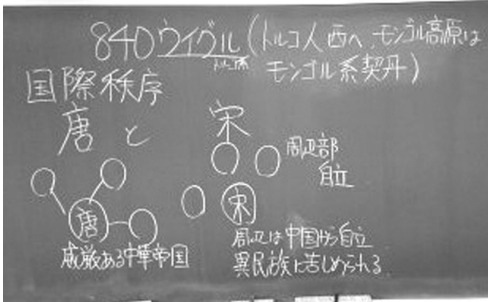 840 ウイグル(トルコ人西へ、モンゴル高原は
トルコ系
モンゴル系契丹)
国際秩序
唐と 宋
周辺部
自立
唐
宋
威厳ある中華帝国
周辺は中国から自立
異民族に苦しめられる